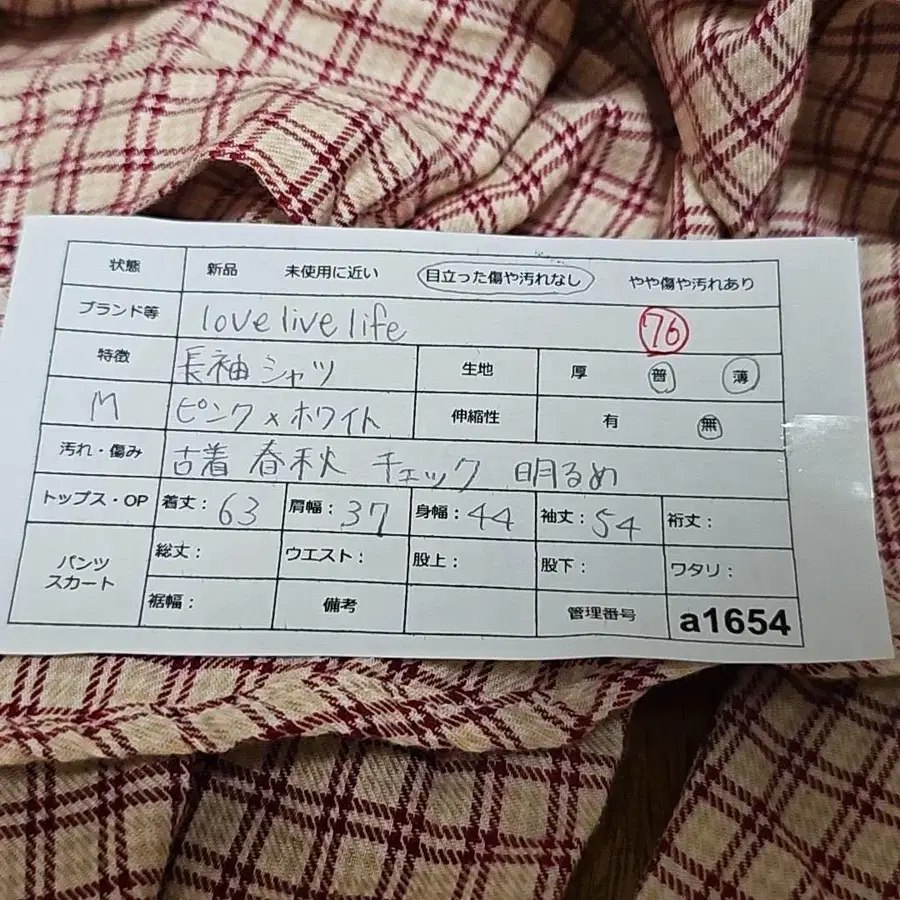 状態 新品 未使用に近い 目立った傷や汚れなし やや傷や汚れあり
ブランド等 love live life 76
特徴 長袖シャツ 生地 厚 普 薄
M ピンク×ホワイト 伸縮性 有 無
汚れ・傷み 古着 春秋 チェック 明るめ
トップス・OP 着丈: 63 肩幅: 37 身幅: 44 袖丈: 54 裄丈:
パンツ 総丈: ウエスト: 股上: 股下: ワタリ:
スカート
裾幅: 備考 管理番号 a1654